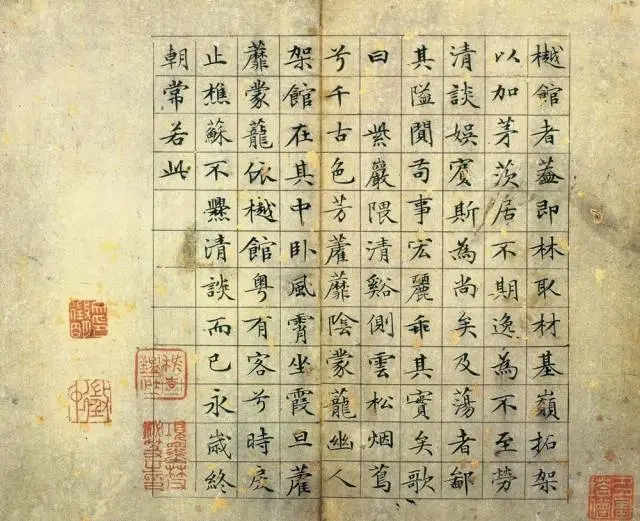 樾館者蓋即林取材基嶺拓架
以加茅茨居不期逸為不至勞
清談娛賓斯為尚矣及蕩者鄙
其隘閴苟事宏麗乖其實矣歌
曰 紫巖隈清谿側雲松烟蔦
兮千古色芳藿蘼陰蒙龍幽人
架館在其中卧風霄坐霞旦藿
蘼蒙龍依樾館粵有客兮時戾
止樵蘇不爨清談而已永歲終
朝常若此